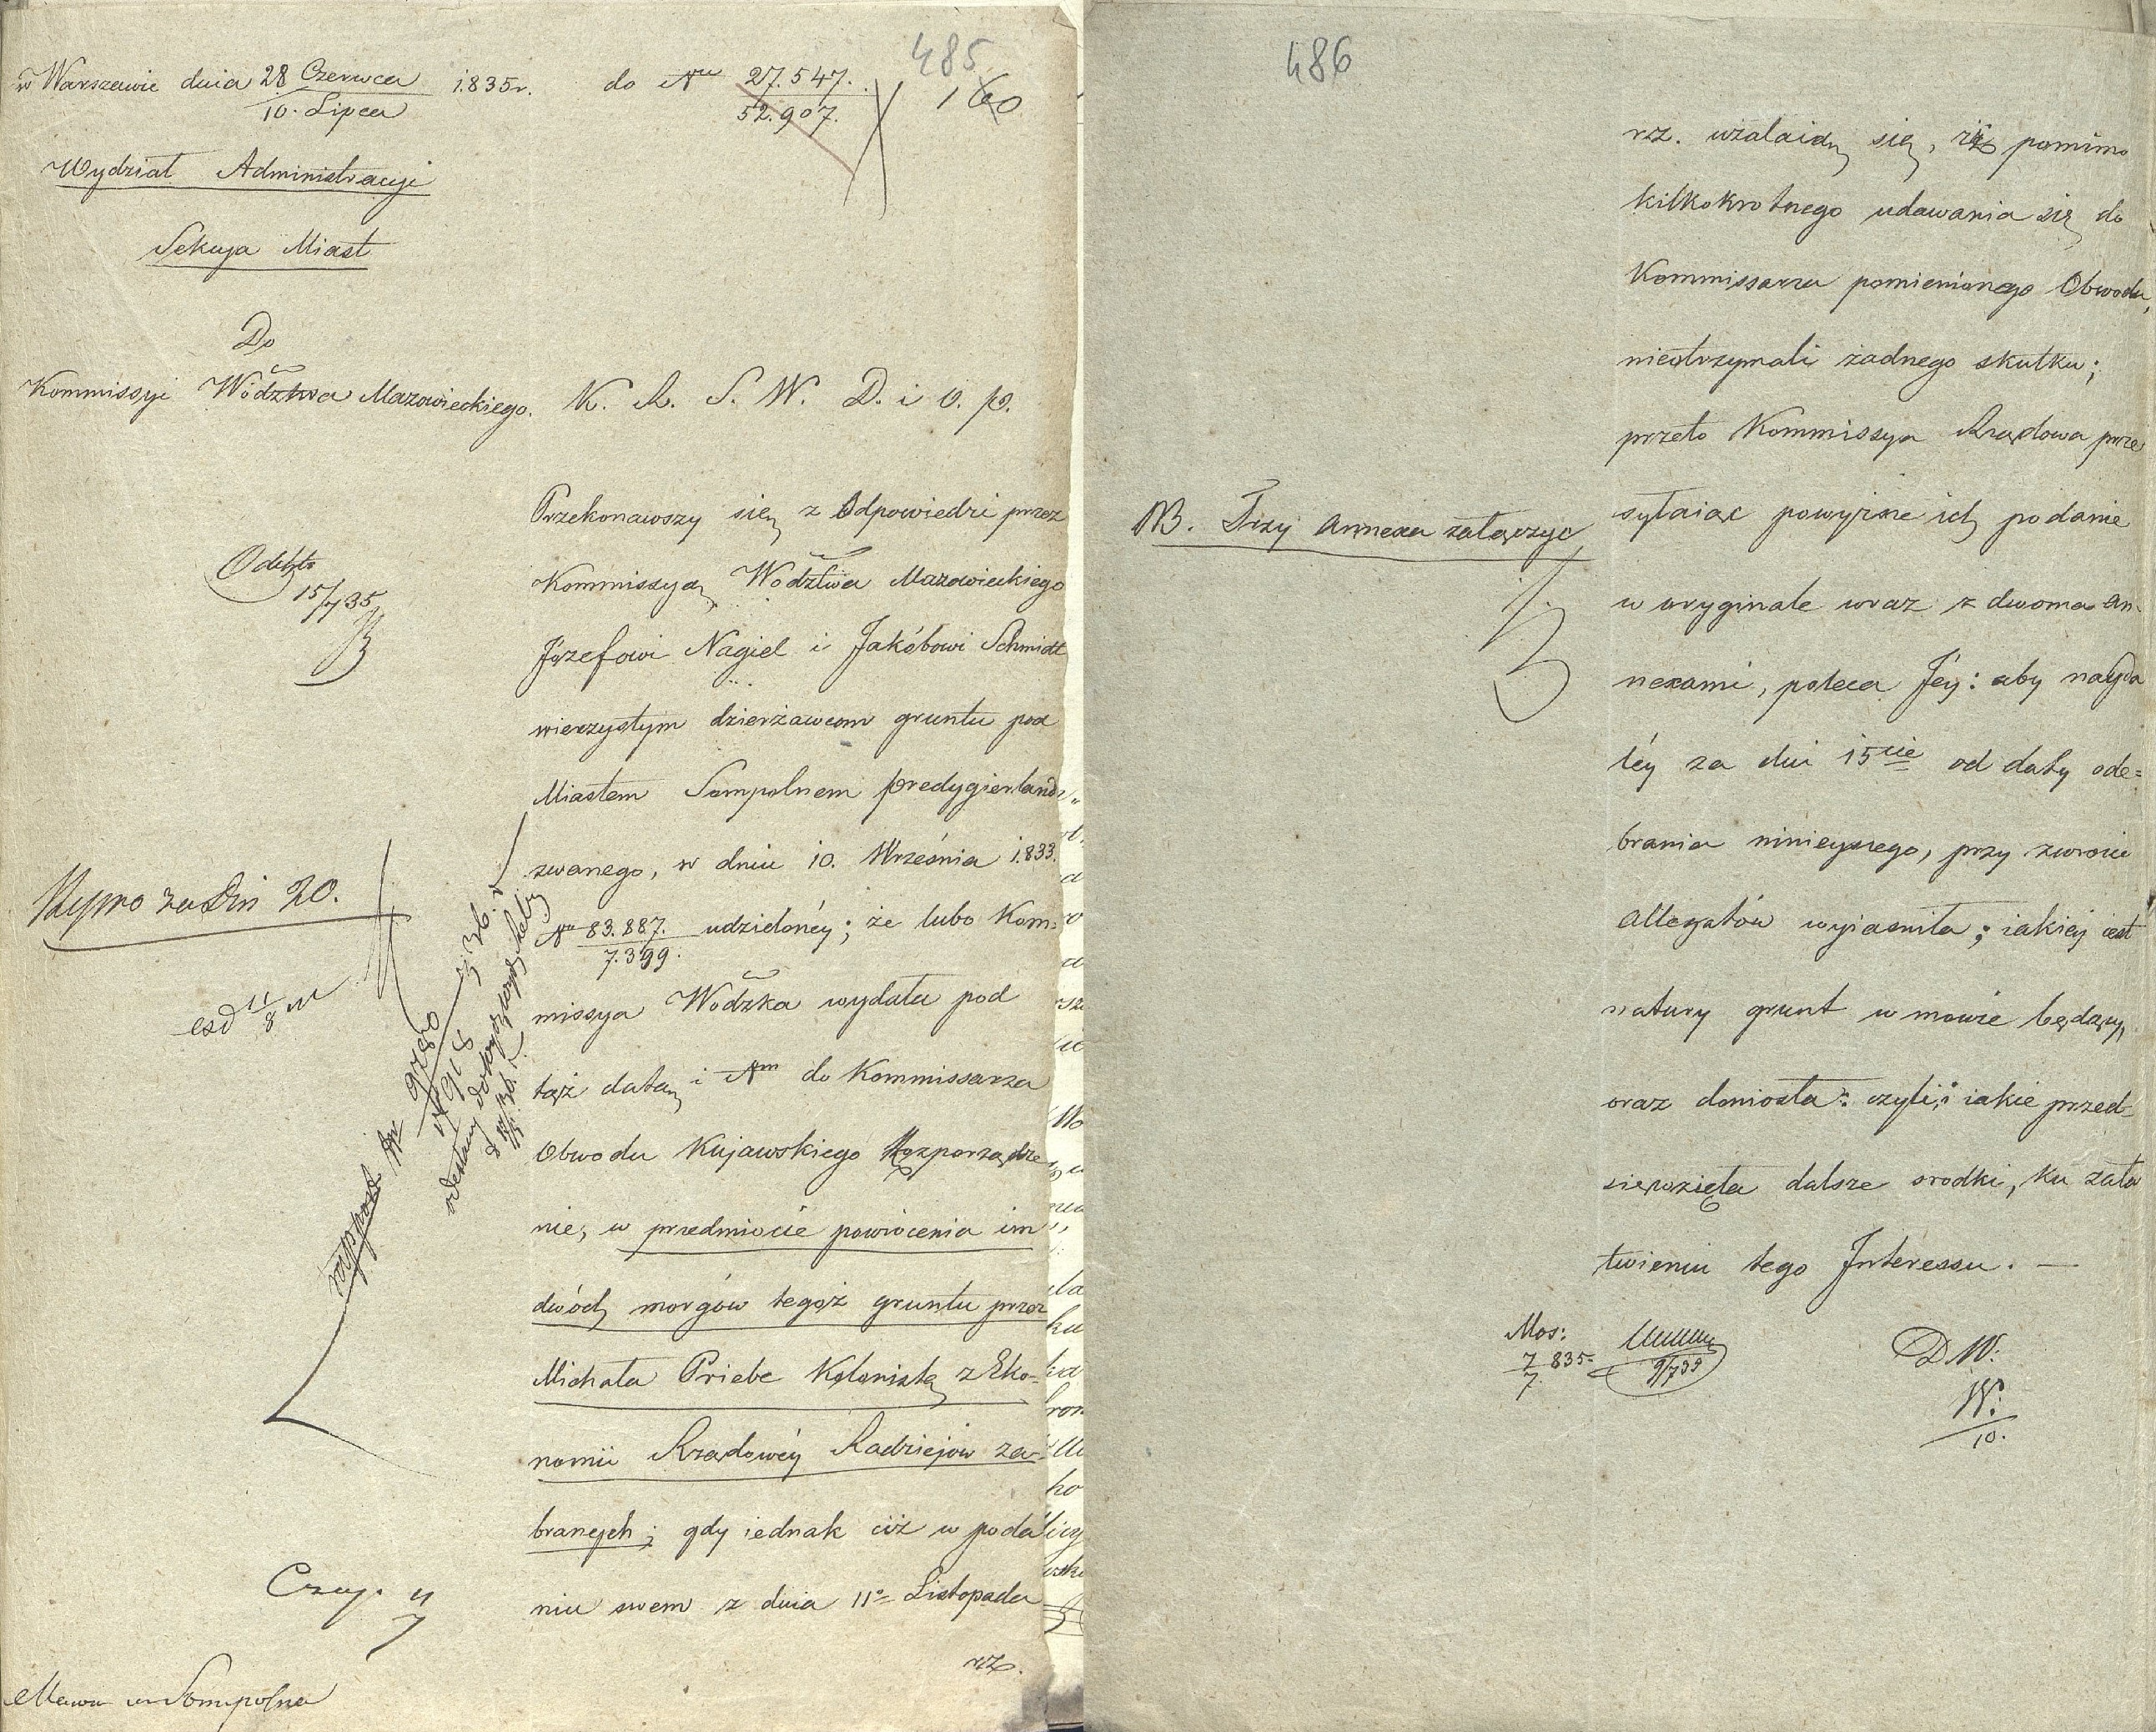 485
w Warszawie dnia 28 Czerwca 1835r. do Nru 27.547.
10. Lipca 52.907.
160
Wydział Administracyi
Sekcya Miast
Do
Kommissyi Wodztwa Mazowieckiego.
K. R. S. W. D. i O. p.
Przekonawszy się z Odpowiedzi przez
Kommissyą Wodztwa Mazowieckiego
Józefowi Nagiel i Jakóbowi Schmidt
wieczystym dzierżawcom gruntu pod
Miastem Sompolnem predygierland
zwanego, w dniu 10. Września 1833.
Nru 83.887. udzieloney; że lubo Kom-
7.399.
missya Wodzka wydała pod
tąż datą i Nrm do Kommissarza
Obwodu Kujawskiego Rozporządze
nie, w przedmiocie powrócenia im
dwóch morgów tegoż gruntu przez
Michała Priebe Kolonistę z Eko-
nomii Rządowéy Radziejów za-
branych; gdy iednak ciż w poda
niu swem z dnia 11o Listopada
rz.
Odebto
15/7 35
Wypro za Dni 20.
esd 11/8
rapport Nr
odesłany do
Czyt. 11
7
Mawa w Sompolna
486
rz. użalaią się, iż pomimo
kilkokrotnego udawania się do
Kommissarza pomienionego Obwodu,
nieotrzymali żadnego skutku;
przeto Kommissya Rządowa prze
syłaiąc powyższe ich podanie
w oryginale wraz z dwoma an-
nexami, poleca Jéy: aby nayda
léy za dni 15cie od daty ode=
brania ninieyszego, przy zwrocie
allegatów wyiasniła; iakiey iest
natury grunt w mowie będący,
oraz doniosła: czyli, i iakie przed-
sięwzięła dalsze srodki, ku zała
twieniu tego Interessu. —
NB. Trzy annexa załączyć
Mos:
7 835.
7
9/7 35
D W:
W:
10.